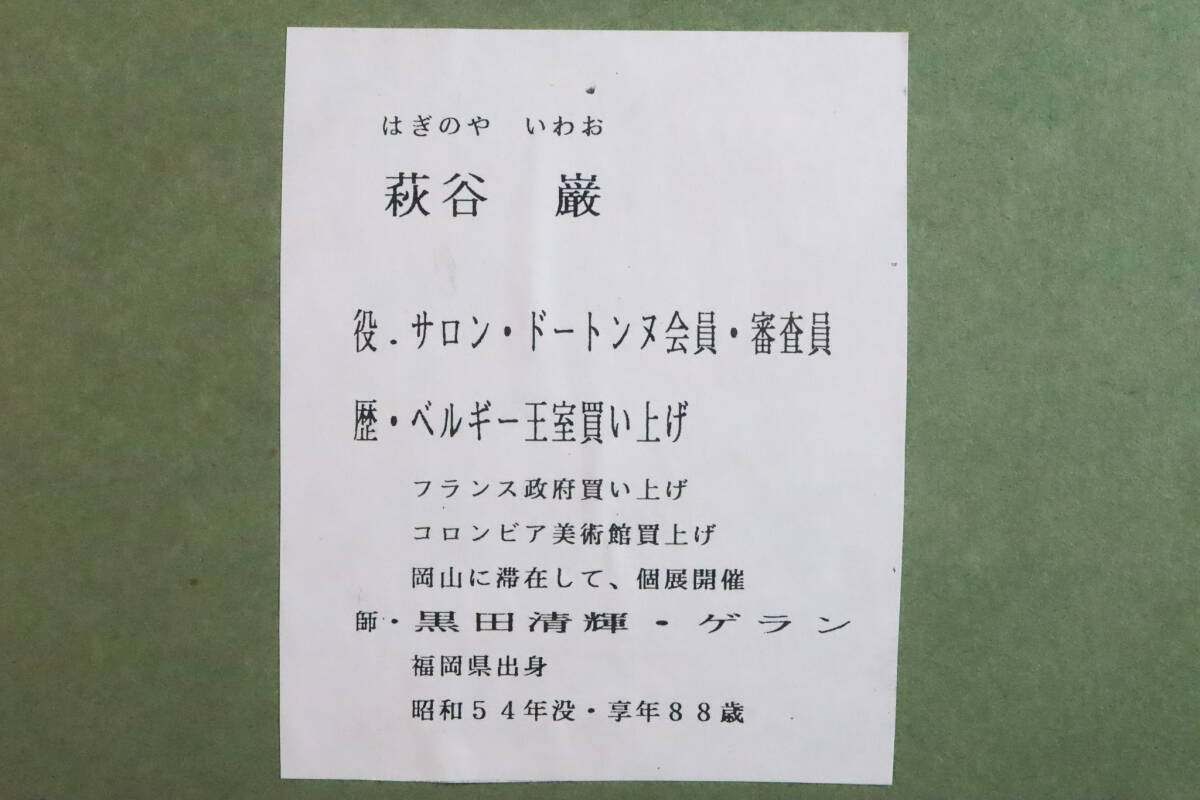 はぎのや　いわお
萩谷　巌
役．サロン・ドートンヌ会員・審査員
歴・ベルギー王室買い上げ
フランス政府買い上げ
コロンビア美術館買上げ
岡山に滞在して、個展開催
師・黒田清輝・ゲラン
福岡県出身
昭和５４年没・享年８８歳